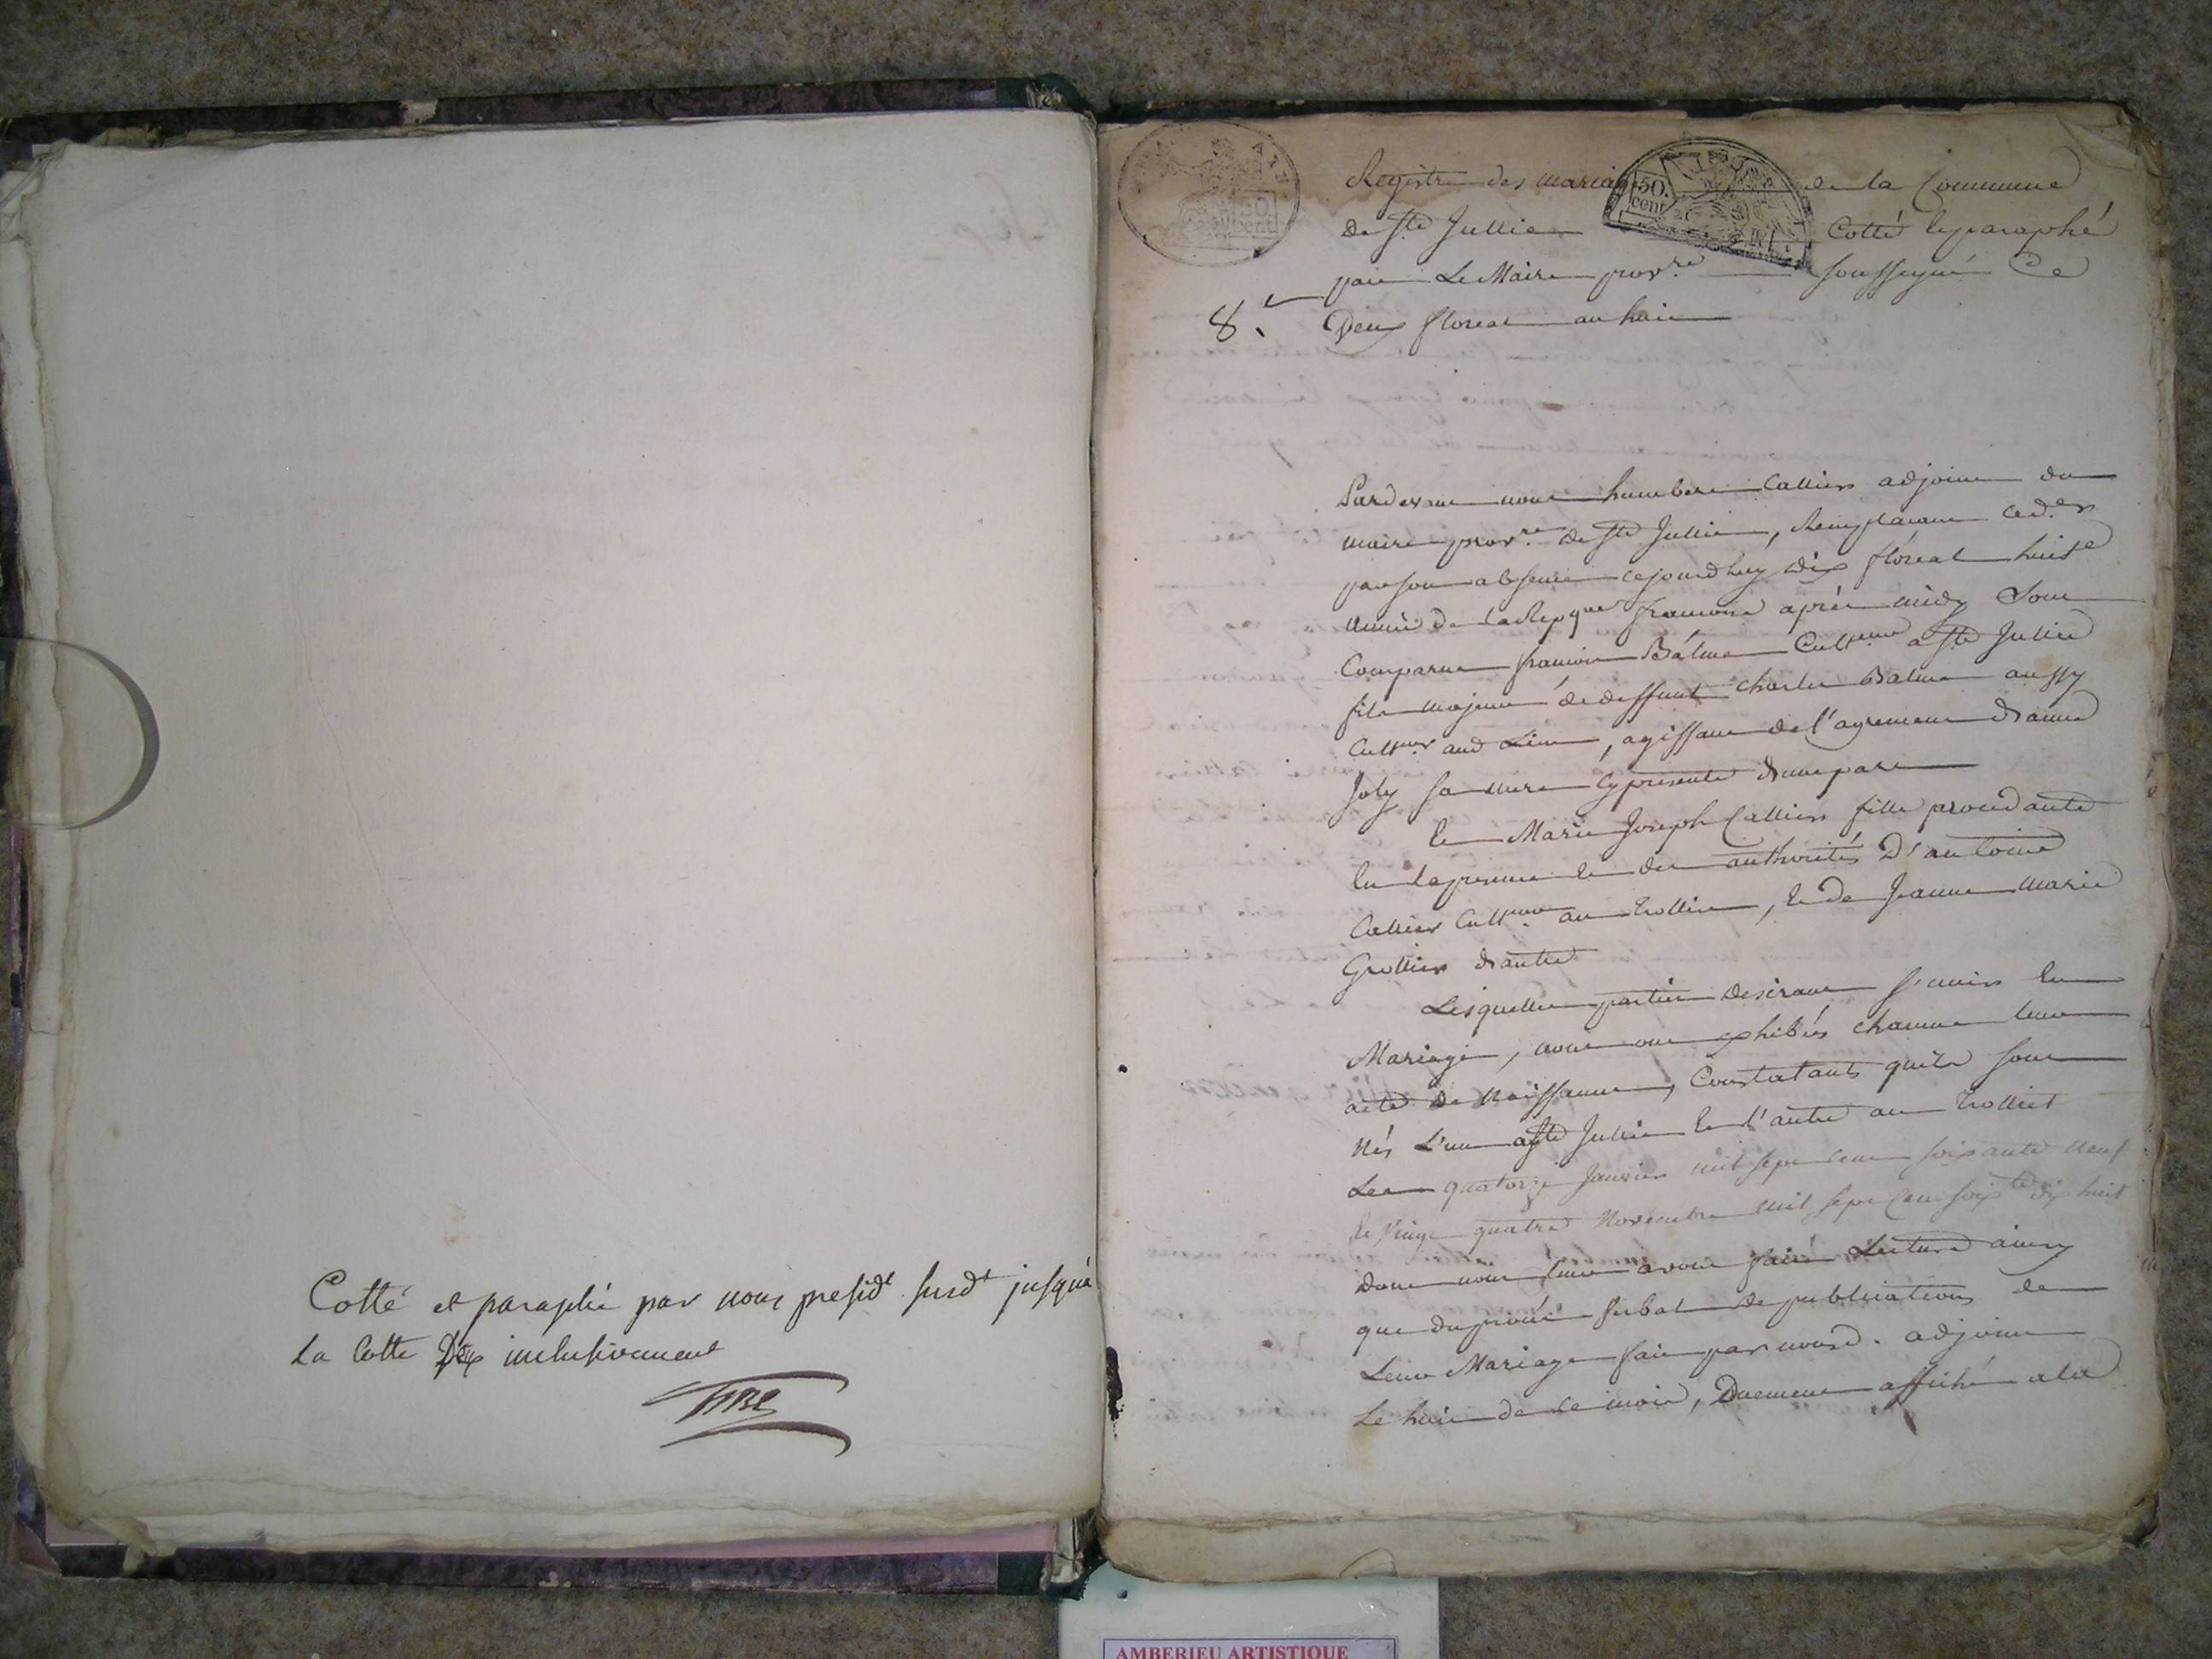 Cotté et paraphé par nous presidt susdt jusqu'a
La Cotte Dix inclusivement
50 cent
50. cent
Registre des mariages de la Commune
de Ste Jullie Cotté et paraphé
par Le Maire provre soussigné Ce
8.
Deux floreal an huit
Pardevant nous humbert Callier adjoint du
maire provre de Ste Jullie, Remplacant ced.er
par son absence cejourdhuy dix floreal huite
Année de la Repque francoise aprés midy Sont
Comparu francois Bálme Cultteur a Ste Jullie
fils majeur de deffunt charles Balme aussy
Cultteur aud Lieu, agissant de l'agrement d'anne
Joly sa mere Cy presente d'une part
Et Marie Joseph Callier fille procedante
En la presence et des authorités D'antoine
Callier Cultteur au trollier, Et de Jeanne Marie
Grollier d'autre
Lesquelles parties desirant s'unir En
Mariage, nous ont exhibés chacun leur
acte de Naissance, Constatants qu'ils sont
Nés L'un a Ste Jullie Et l'autre au trolliet
Les quatorze Janvier mil sept cent soixante Neuf
Et vingt quatre Novembre mil sept Cent soixte dix huit
dont nous leur avons fait Lecture ainsy
que du procés verbal de publications de
Leur Mariage fait par nousd. adjoint
Le huit de ce mois, Duement affiché a la
AMBERIEU ARTISTIQUE